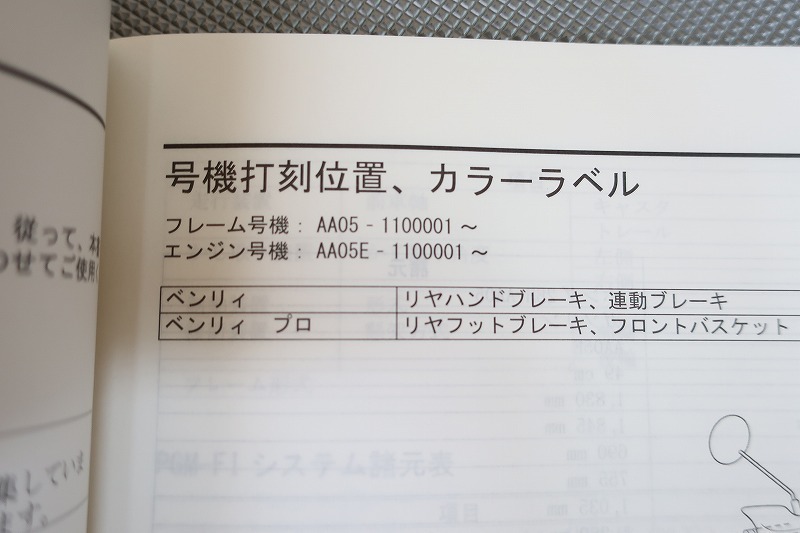 号機打刻位置、カラーラベル
フレーム号機: AA05 - 1100001 ~
エンジン号機: AA05E - 1100001 ~
ベンリィ リヤハンドブレーキ、連動ブレーキ
ベンリィ プロ リヤフットブレーキ、フロントバスケット
従って、本
わせてご使用
集していま
ます。